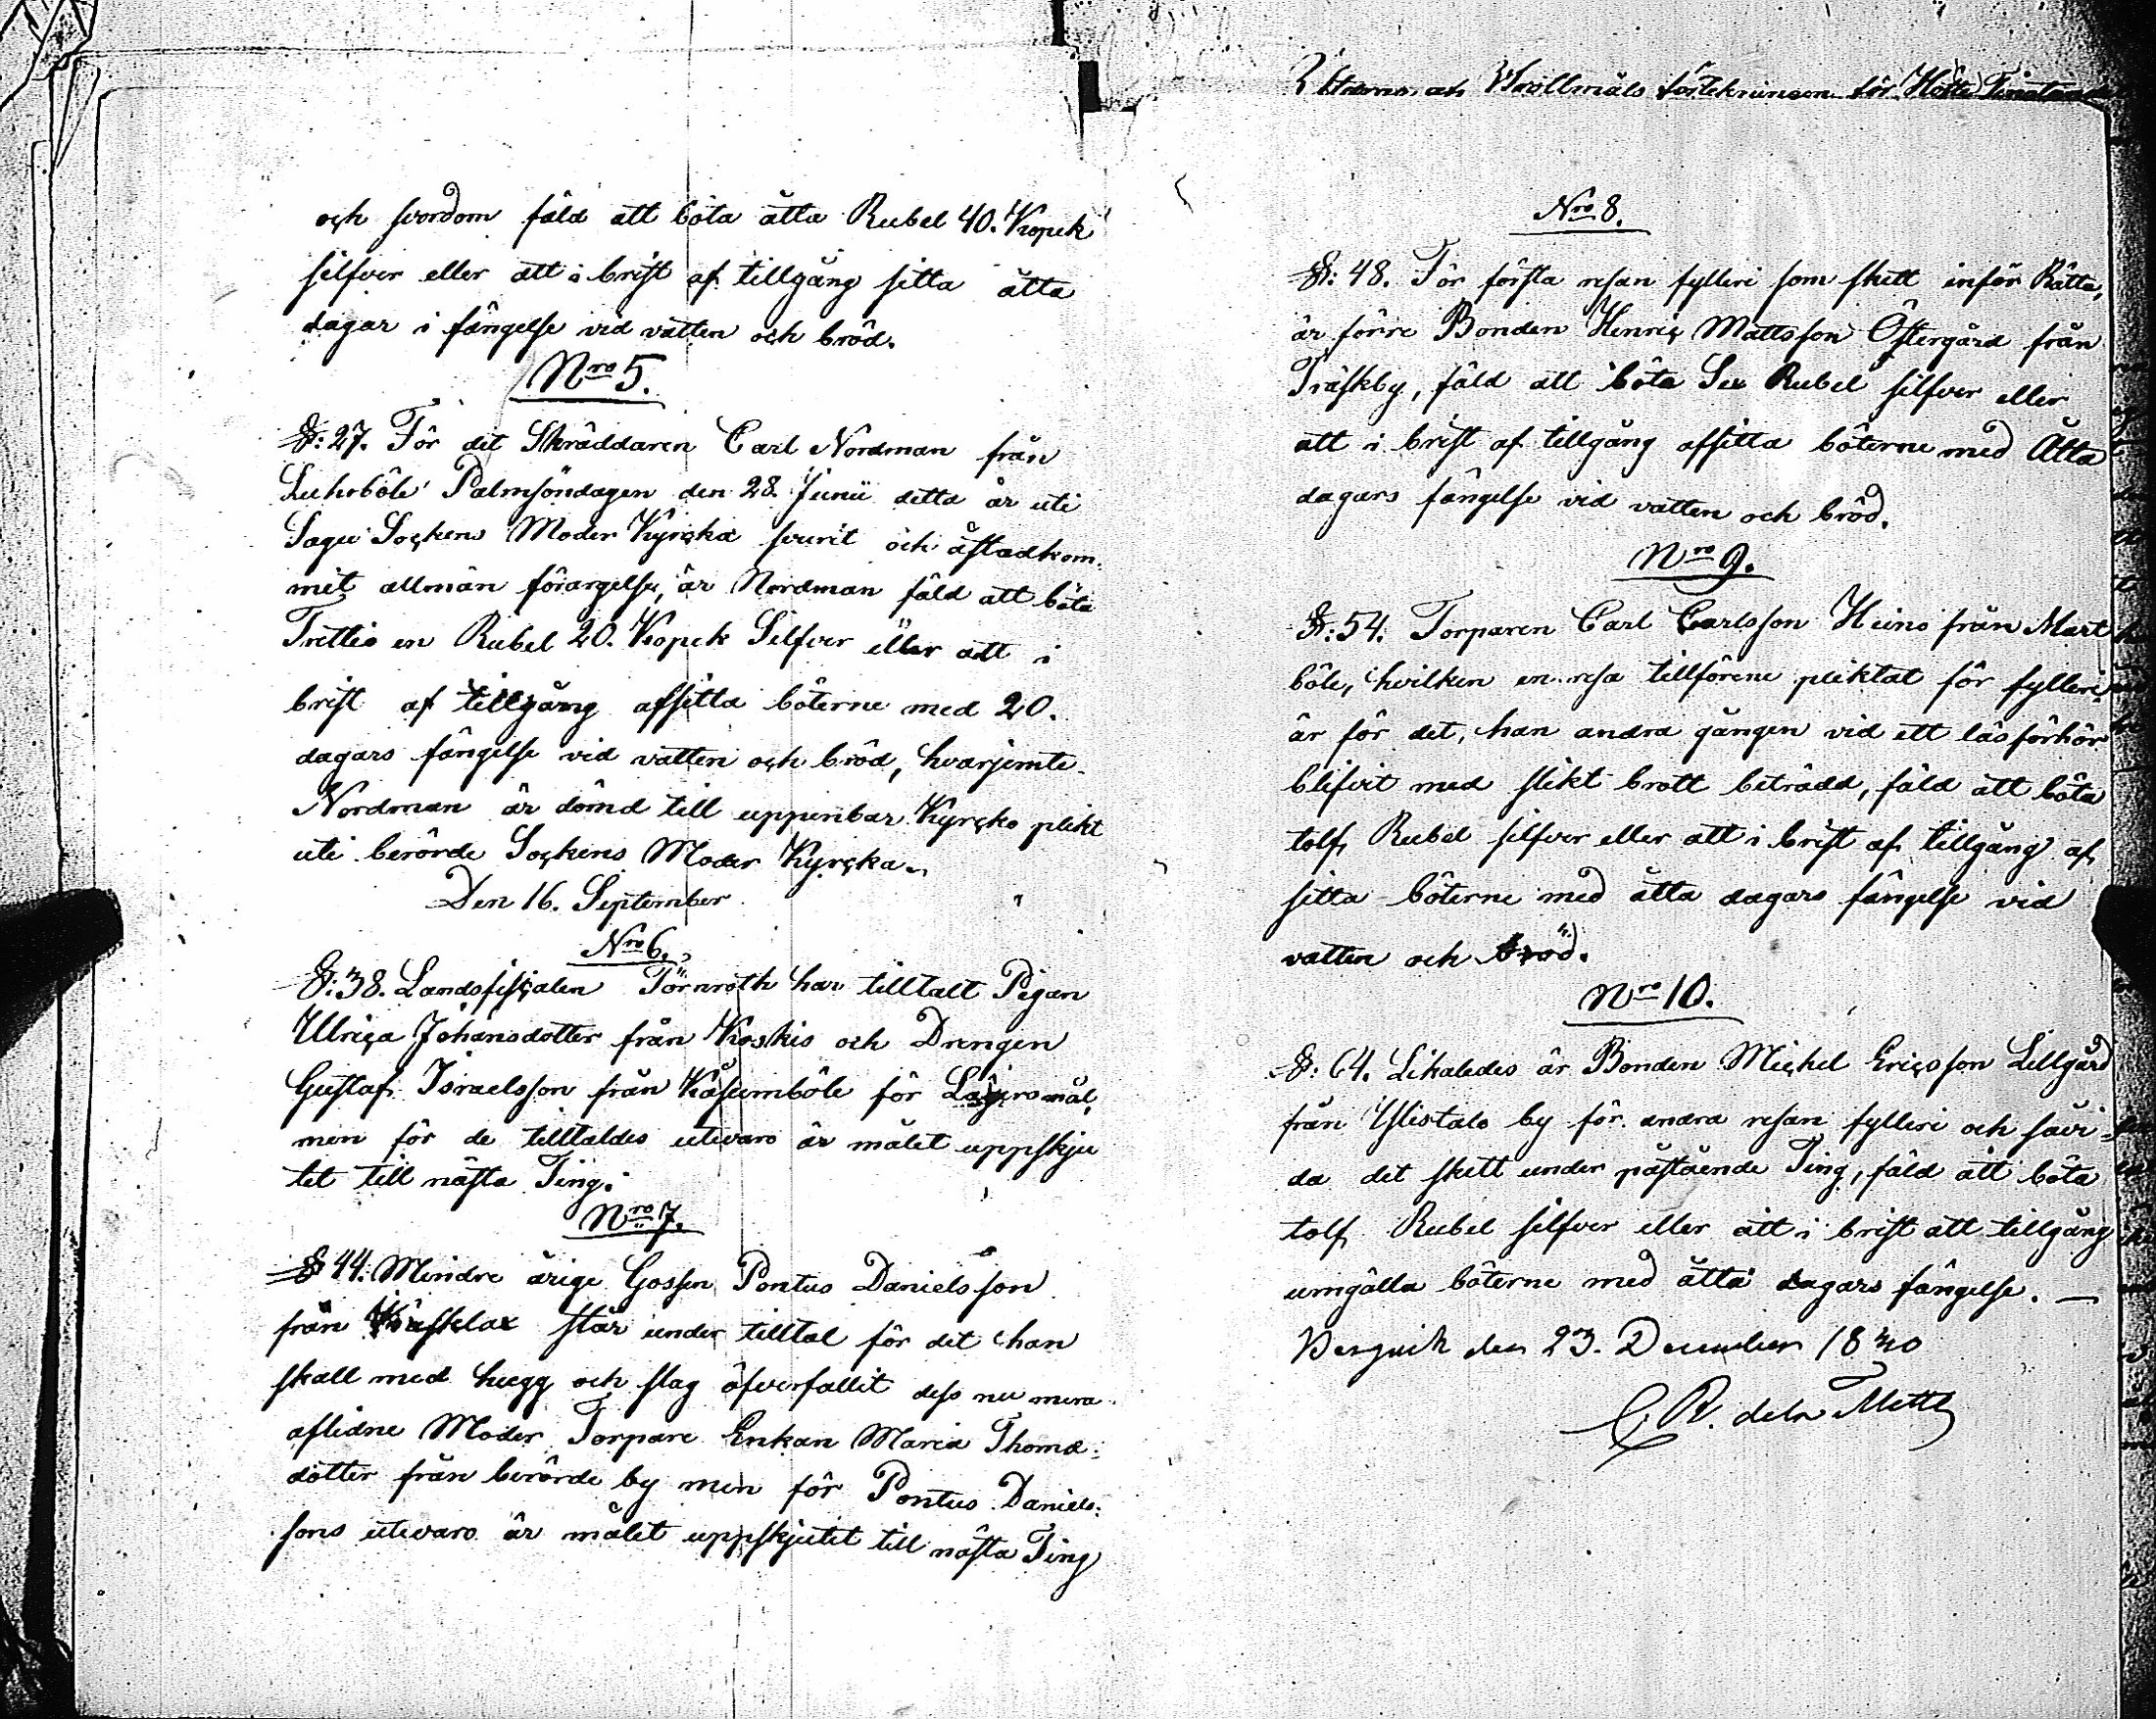 och svordom fäld att böta åtta Rubel 40. Kopek
silfver eller att i brist af tillgång sitta åtta
dagar i fängelse vid vatten och bröd.
Nro 5.
§: 27. För det Skräddaren Carl Nordman från
Palmsöndagen den 28. Junii detta år uti
Sagu Sockens Moder Kyrcka svurit och åstadkom-
mit allmän förargelse, är Nordman fäld att böta
Trettio en Rubel 20. Kopek Silfver eller att i
brist af tillgång afsitta böterne med 20.
dagars fängelse vid vatten och bröd, hvarjemte
Nordman är dömd till uppenbar Kyrcko plikt
uti berörde Sockens Moder Kyrcka.
Den 16. September
Nro 6.
§: 38. Landsfiscalen Törnroth har tilltalt Pigan
Ulrica Johansdotter från Koskis och Drengen
Gustaf Israelsson från Kåsumböle för Lägersmål,
men för de tilltaldes utevaro är målet uppskju
tet till nästa Ting.
Nro 7.
§ 44. Mindre årige Gossen Pontus Danielsson
från står under tilltal för det han
skall med hugg och slag öfverfallit dess nu mera
aflidne Moder Torpare Enkan Maria Thomæ-
dotter från berörde by men för Pontus Daniels-
sons utevaro är målet uppskjutet till nästa Ting
och Brottmåls förtekningen för
Nro 8.
§: 48. För första resan fylleri som skett inför Rätta,
är förre Bonden Henric Mattsson Östergård från
Träskby, fäld att böta Sex Rubel silfver eller
att i brist af tillgång afsitta böterne med Åtta
dagars fängelse vid vatten och bröd.
Nro 9.
§: 54. Torparen Carl Carlsson Heino från Mart
böle, hvilken en resa tillförene pliktat för fylleri,
är för det, han andra gången vid ett läsförhör
blifvit med slikt brott beträdd, fäld att böta
tolf Rubel silfver eller att i brist af tillgång af
sitta böterne med åtta dagars fängelse vid
vatten och bröd.
Nro 10.
§: 64. Likaledes är Bonden Michel Ericsson Lillgård
från Ylistalo by för andra resan fylleri och såvi-
da det skett under påstående Ting, fäld att böta
tolf Rubel silfver eller att i brist att tillgång
umgälla böterne med åtta dagars fängelse. —
den 23. December 1840